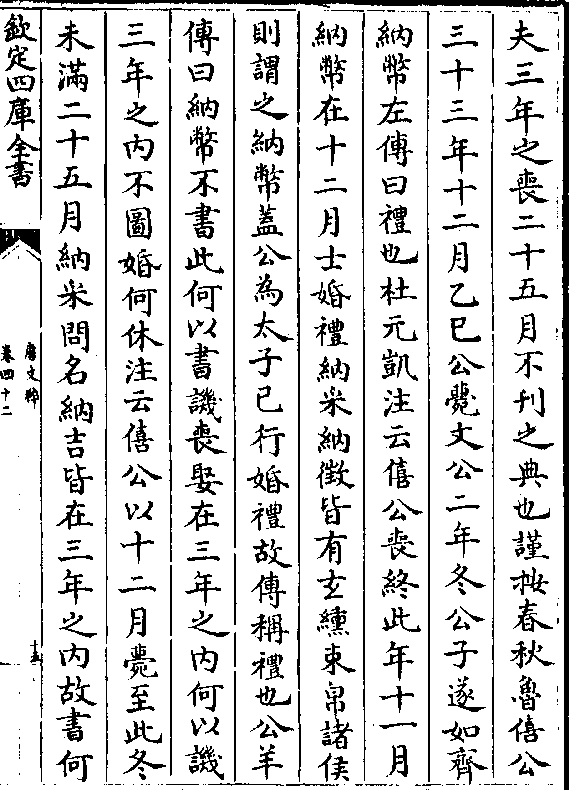 夫三年之喪二十五月不刊之典也謹按春秋魯僖公
三十三年十二月乙巳公薨文公二年冬公子遂如齊
納幣左傳曰禮也杜元凱注云僖公喪終此年十一月
納幣在十二月士婚禮納采納徵皆有玄纁束帛諸侯
則謂之納幣蓋公為太子已行婚禮故傳稱禮也公羊
傳曰納幣不書此何以書譏喪娶在三年之內何以譏
三年之內不圖婚何休注云僖公以十二月薨至此冬
未滿二十五月納采問名納吉皆在三年之內故書何
欽定四庫全書
唐文粹
卷四十二
十五